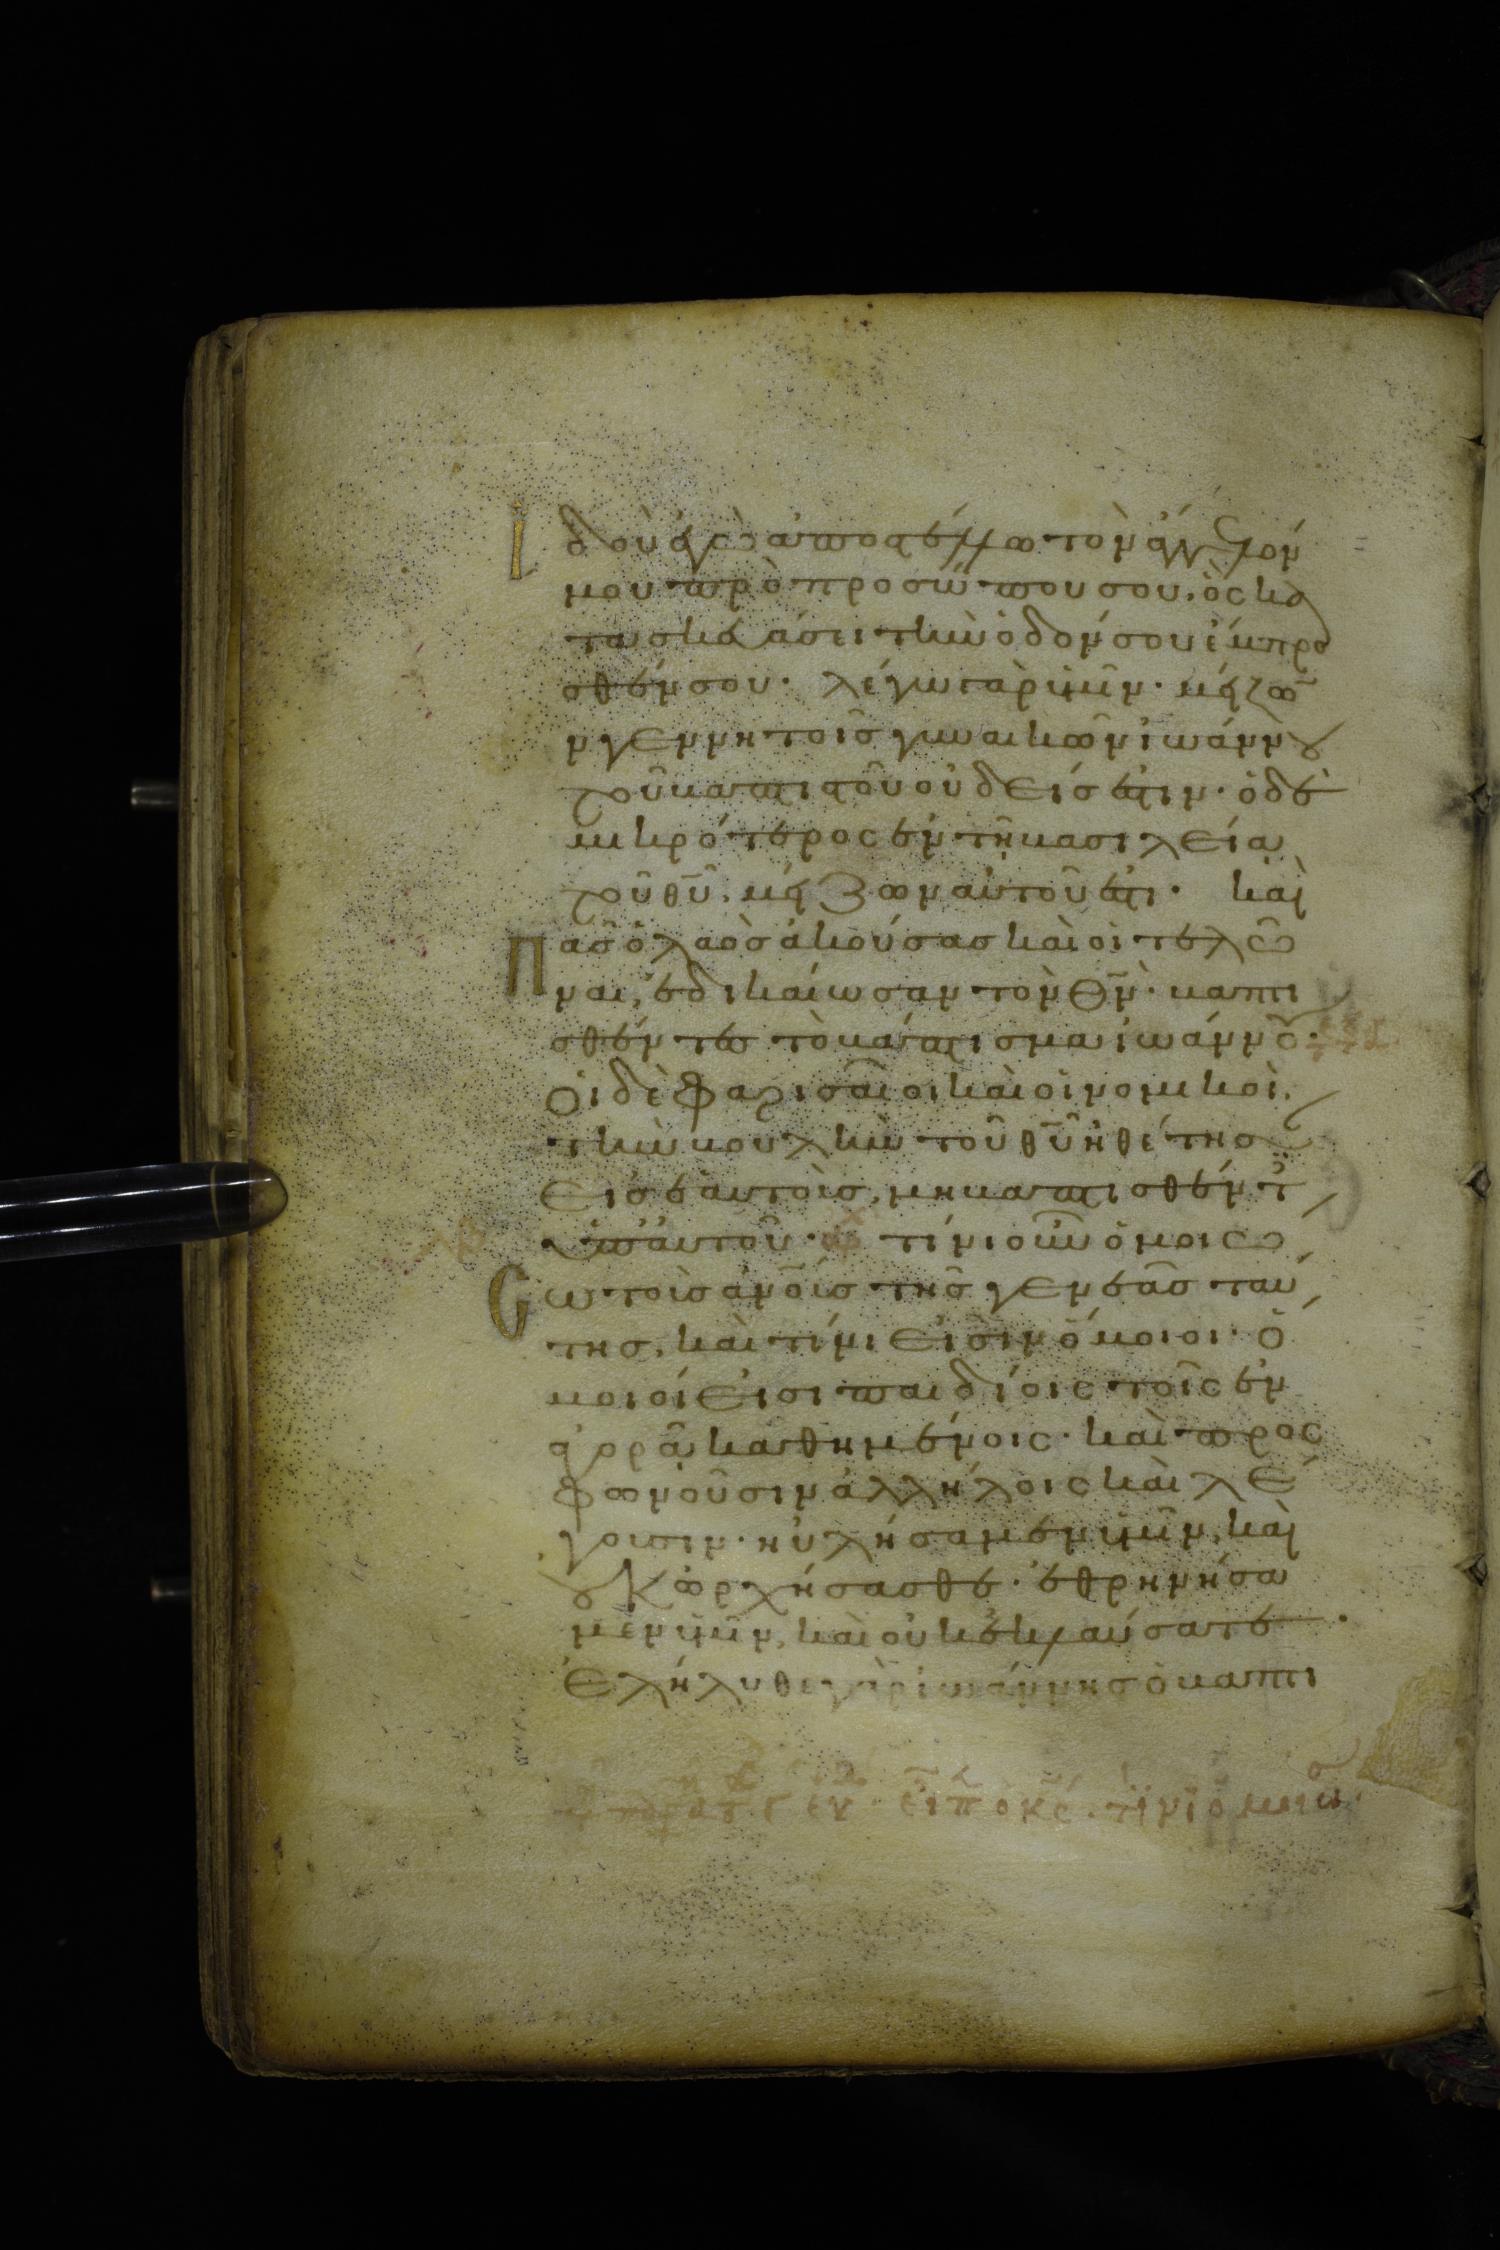 Ἰδοὺ ἐγὼ ἀποστέλλω τὸν ἄγγελόν
μου πρὸ προσώπου σου, ὃς κα
τασκευάσει τὴν ὁδόν σου ἔμπρο
σθέν σου· λέγω γὰρ ὑμῖν· μείζω
ν γεννητοῖς γυναικῶν ἰωάννου
τοῦ βαπτιστοῦ οὐδείς ἐστιν· ὁ δὲ
μικρότερος ἐν τῇ βασιλείᾳ
τοῦ θῦ, μείζων αὐτοῦ ἐστι· καὶ
Πᾶς ὁ λαὸς ἀκούσας καὶ οἱ τελῶ
ναι, ἐδικαίωσαν τὸν θν· βαπτι
σθέντες τὸ βάπτισμα ἰωάννου·
Οἱ δὲ φαρισαῖοι καὶ οἱ νομικοὶ,
τὴν βουλὴν τοῦ θῦ ἠθέτησ
εἰς ἑαυτοὺς, μὴ βαπτισθέντ
ὑπ' αὐτοῦ· τίνι οὖν ὁμοιώ
Σω τοὺς ἀνους τῆς γενεᾶς ταύ
της, καὶ τίνι εἰσὶν ὅμοιοι· ὅ
μοιοί εἰσι παιδίοις τοῖς ἐν
ἀγορᾷ καθημένοις· καὶ προς
φωνοῦσιν ἀλλήλοις καὶ λέ
γουσιν· ηὐλήσαμεν ὑμῖν, καὶ
οὐκ ὠρχήσασθε· ἐθρηνήσα
μεν ὑμῖν, καὶ οὐκ ἐκλαύσατε·
Ἐλήλυθε γὰρ ἰωάννης ὁ βαπτι
εἶπ ὁ κς· τίνι ὁμοιώ